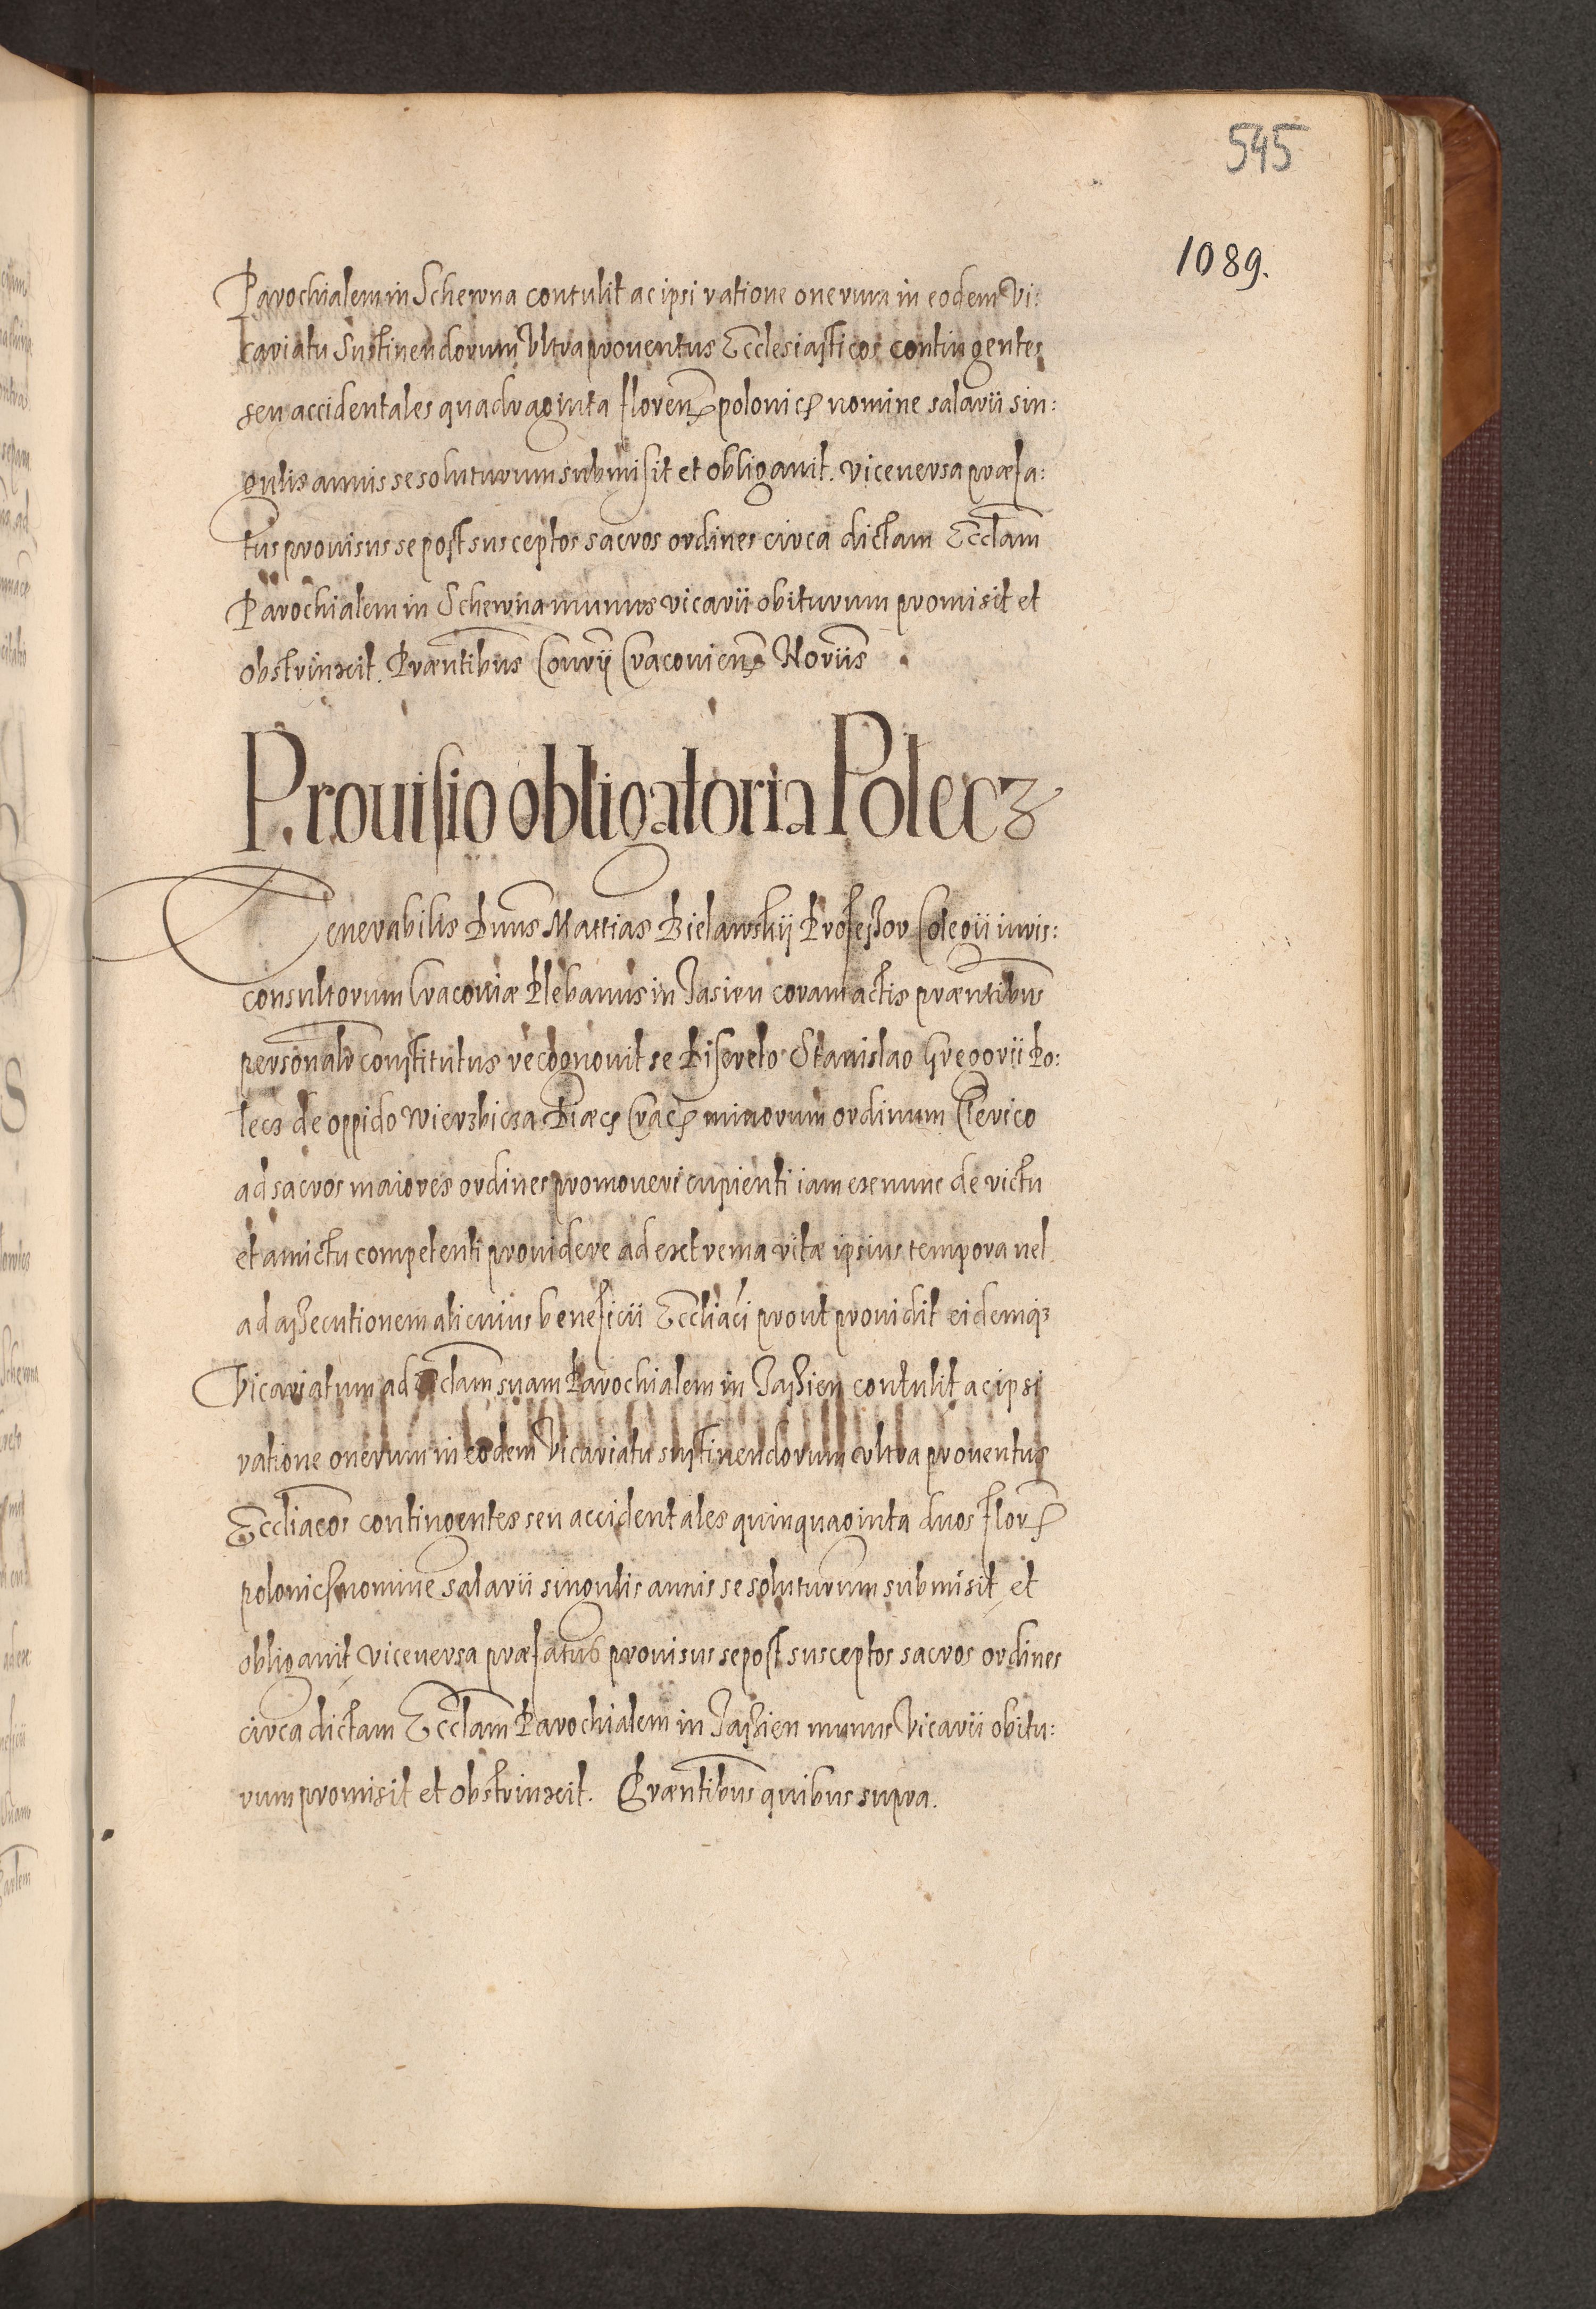 545
1089.
Parochialem in Scherna contulit ac ipsi ratione onerum in eodem Vi:
cariatu Sustinendorum Vltra prouentus Ecclesiasticos contingentes
seu accidentales quadraginta floren polonic nomine salarii sin:
gulis annis se soluturum submisit et obligauit. viceuersa præfa:
tus prouisus se post susceptos sacros ordines circa dictam Ecclam
Parochialem in Scherna munus vicarii obiturum promisit et
obstrinxit. Præntibus Consrÿ Cracouien Noriis.
Prouisio obligatoria Polecz
Venerabilis Dnus Mattias Bielawskÿ Professor Colegii iuris:
consultorum Cracouiæ Plebanus in Jasien coram actis præntibus
personalr constitutus recognouit se Discreto Stanislao Gregorii Po:
lecz de oppido Wierzbicza Diæc Crac minorum ordinum Clerico
ad sacros maiores ordines promoueri cupienti iam ex nunc de victu
et amictu competenti prouidere ad extrema vitæ ipsius tempora uel
ad assecutionem alicuius beneficii Eccliaci prout prouidit eidemq3
Vicariatum ad Ecclam suam Parochialem in Jassien contulit ac ipsi
ratione onerum in eodem Vicariatu sustinendorum vltra prouentus
Eccliacos contingentes seu accidentales quinquaginta duos flor
polonic nomine salarii singulis annis se soluturum submisit et
obligauit viceuersa præfatus prouisus se post susceptos sacros ordines
circa dictam Ecclam Parochialem in Jassien munus Vicarii obitu:
rum promisit et obstrinxit. Præntibus quibus supra.